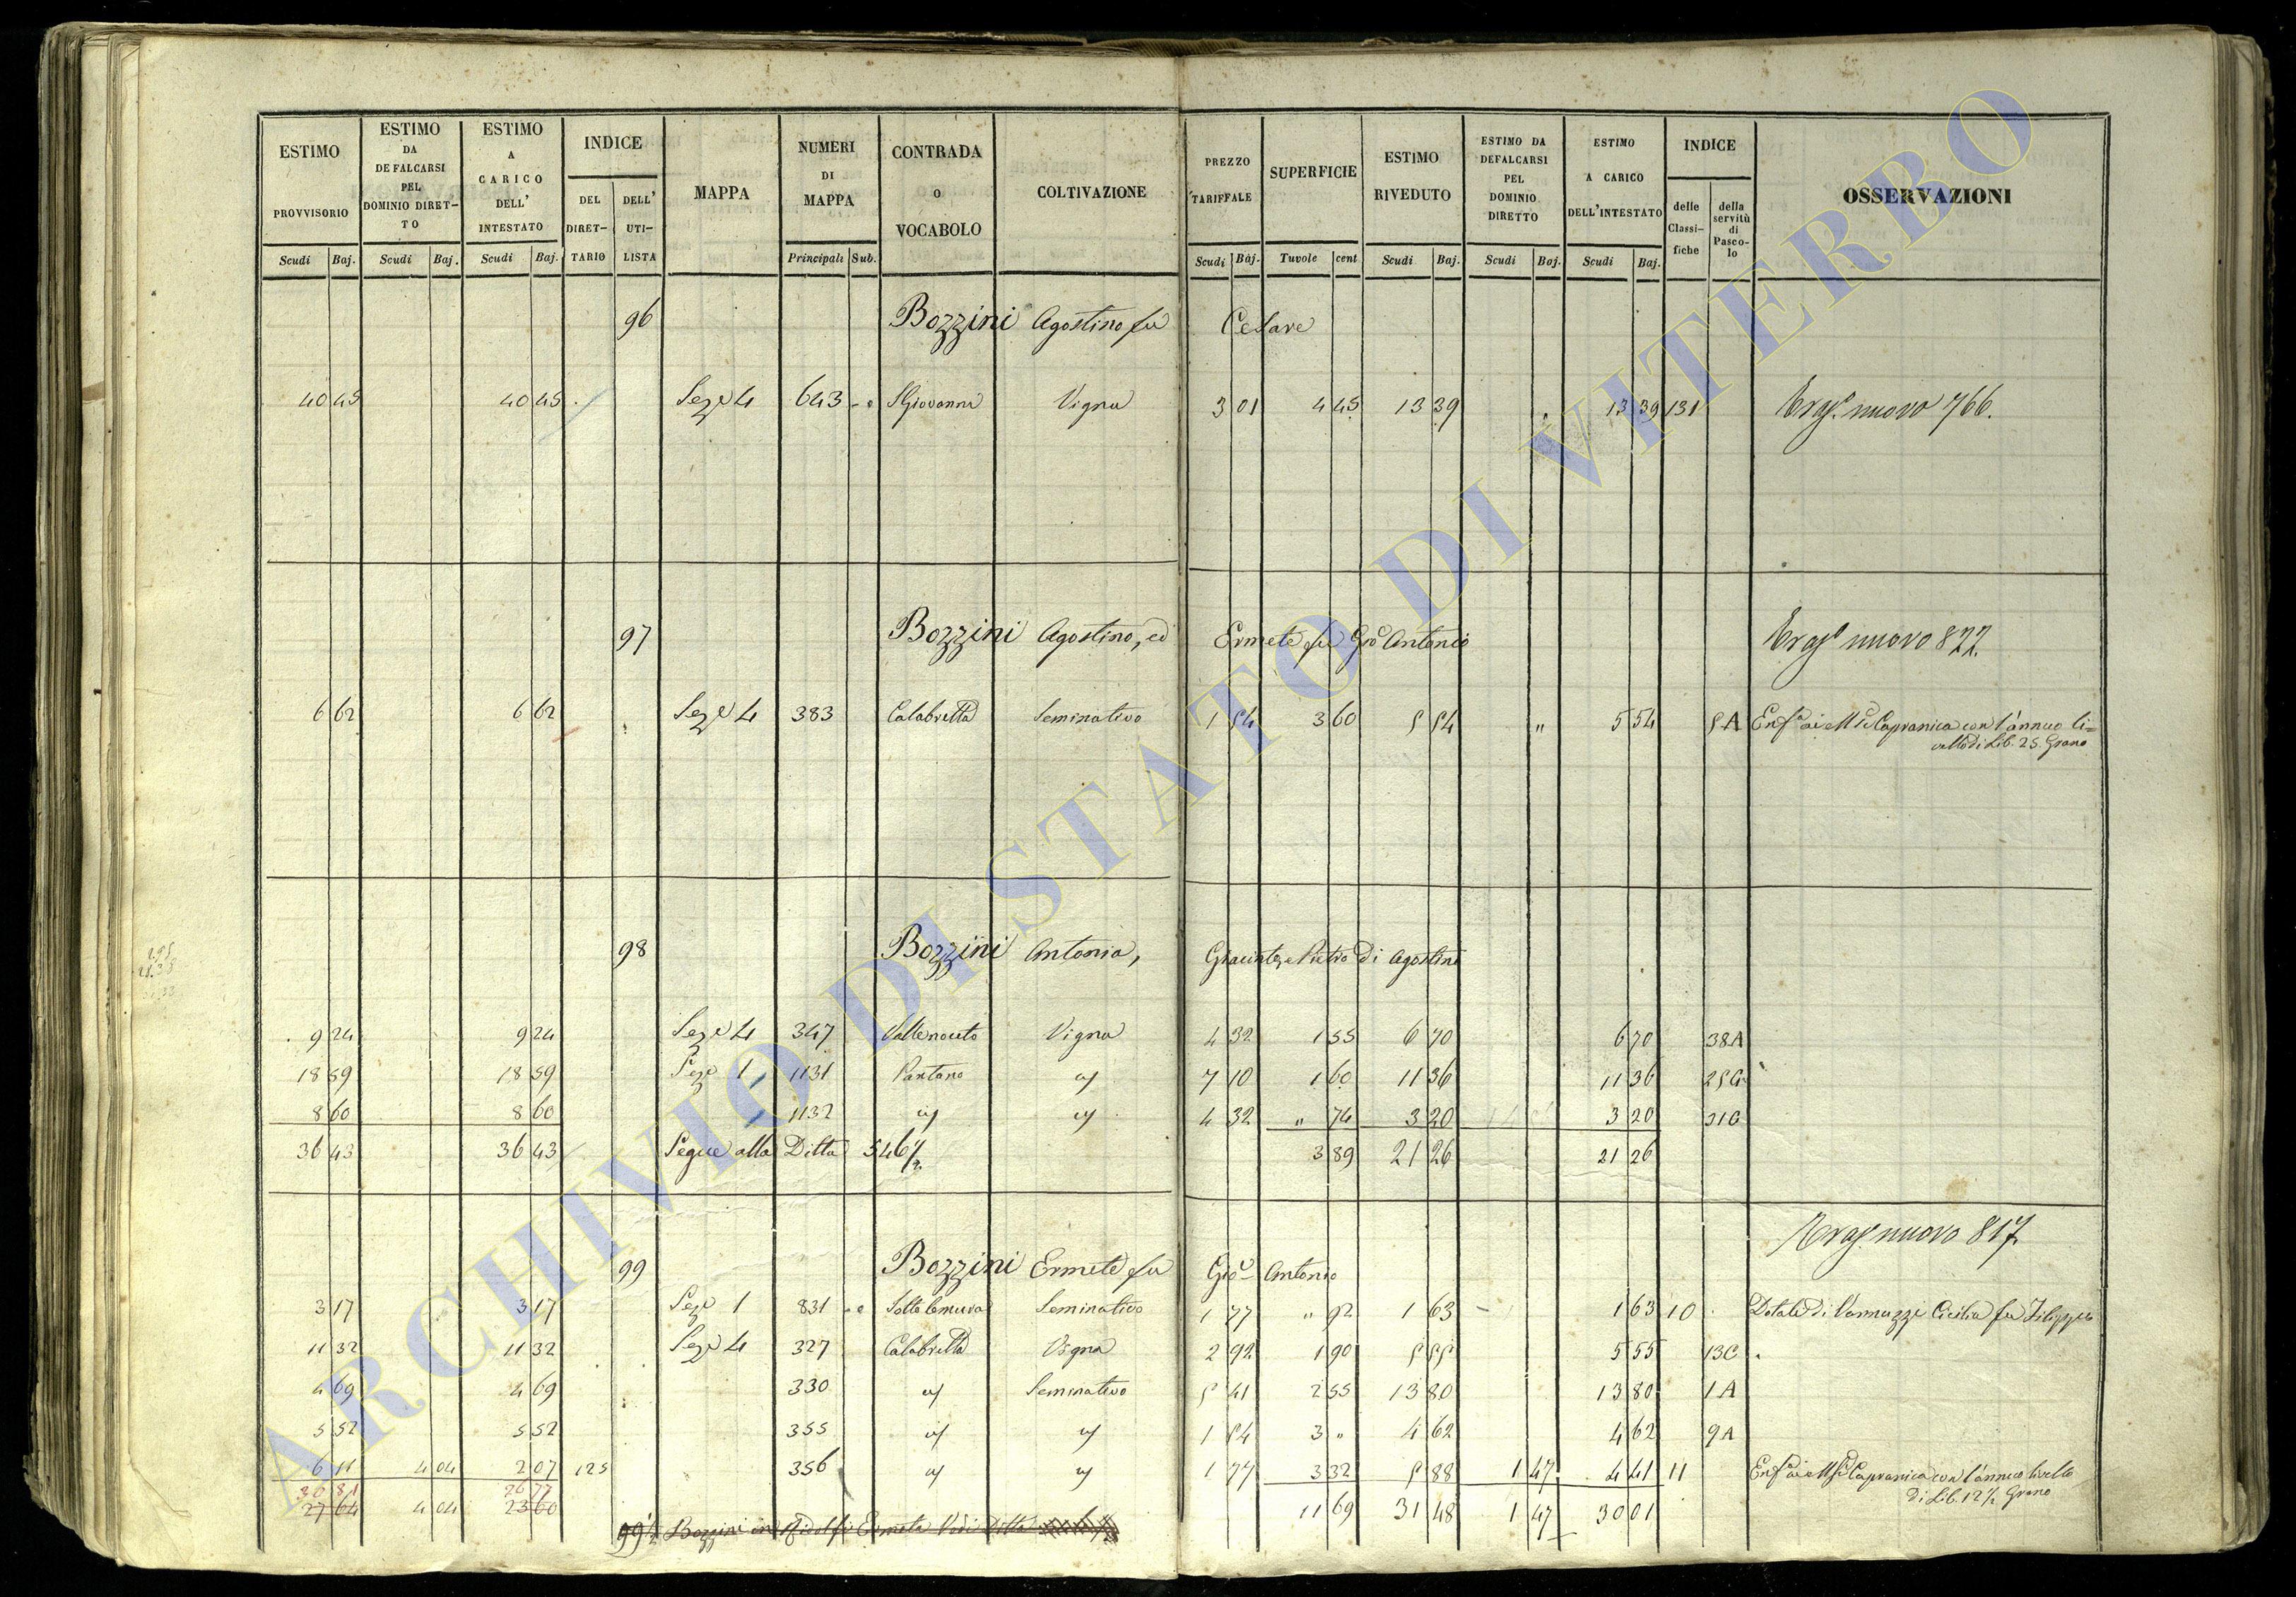 ESTIMO PROVVISORIO Scudi Baj. ESTIMO DA DEFALCARSI PEL DOMINIO DIRET- TO Scudi Baj. ESTIMO A CARICO DELL' INTESTATO Scudi Baj. INDICE DEL DIRET- TARIO DELL' UTI- LISTA MAPPA NUMERI DI MAPPA Principali Sub. CONTRADA O VOCABOLO COLTIVAZIONE PREZZO TARIFFALE Scudi Baj. SUPERFICIE Tuvole cent ESTIMO RIVEDUTO Scudi Baj. ESTIMO DA DEFALCARSI PEL DOMINIO DIRETTO Scudi Baj. ESTIMO A CARICO DELL'INTESTATO Scudi Baj. INDICE delle Classi- fiche della servitù di Pasco- lo OSSERVAZIONI
96 Bozzini Agostino fu Cesare
40 45 40 45 Seze 4 643 S Giovanni Vigna 3 01 4 45 13 39 13 39 131 nuovo 766.
97 Bozzini Agostino, ed Ermete fu Gio Antonio nuovo 822.
6 62 6 62 Seze 4 383 Calabretta Seminativo 1 54 3 60 5 54 " 5 54 5A Capranica con l'annuo li=
vello di Lib. 25. Grano
98 Bozzini Antonia, Giacinto, e Pietro di Agostino
9 24 9 24 Seze 4 347 Valle noceto Vigna 4 32 1 55 6 70 6 70 38A
18 59 18 59 Seze 1 1131 Pantano 7 10 1 60 11 36 11 36
8 60 8 60 1132 4 32 " 74 3 20 3 20
36 43 36 43 Segue alla Ditta 546 1/2 3 89 21 26 21 26
nuovo 817
99 Bozzini Ermete fu Gio Antonio
3 17 3 17 Seze 1 831 Sotto le mura Seminativo 1 77 " 92 1 63 1 63 10 Dotale di Vannuzzi Cicilia fu Filippo
11 32 11 32 Seze 4 327 Calabretta Vigna 2 92 1 90 5 55 5 55 13C
4 69 4 69 330 Seminativo 5 41 2 55 13 80 13 80 1A
5 52 5 52 355 1 54 3 " 4 62 4 62 9A
6 11 4 04 2 07 125 356 1 77 3 32 5 88 1 47 4 41 11 Capranica con l'annuo livello
di Lib. 12 1/2 Grano
30 81 26 77
27 64 4 04 23 60 11 69 31 48 1 47 30 01
99 1/2 Bozzini in Ridolfi Ermeta Vedi Ditta
ARCHIVIO DI STATO DI VITERBO